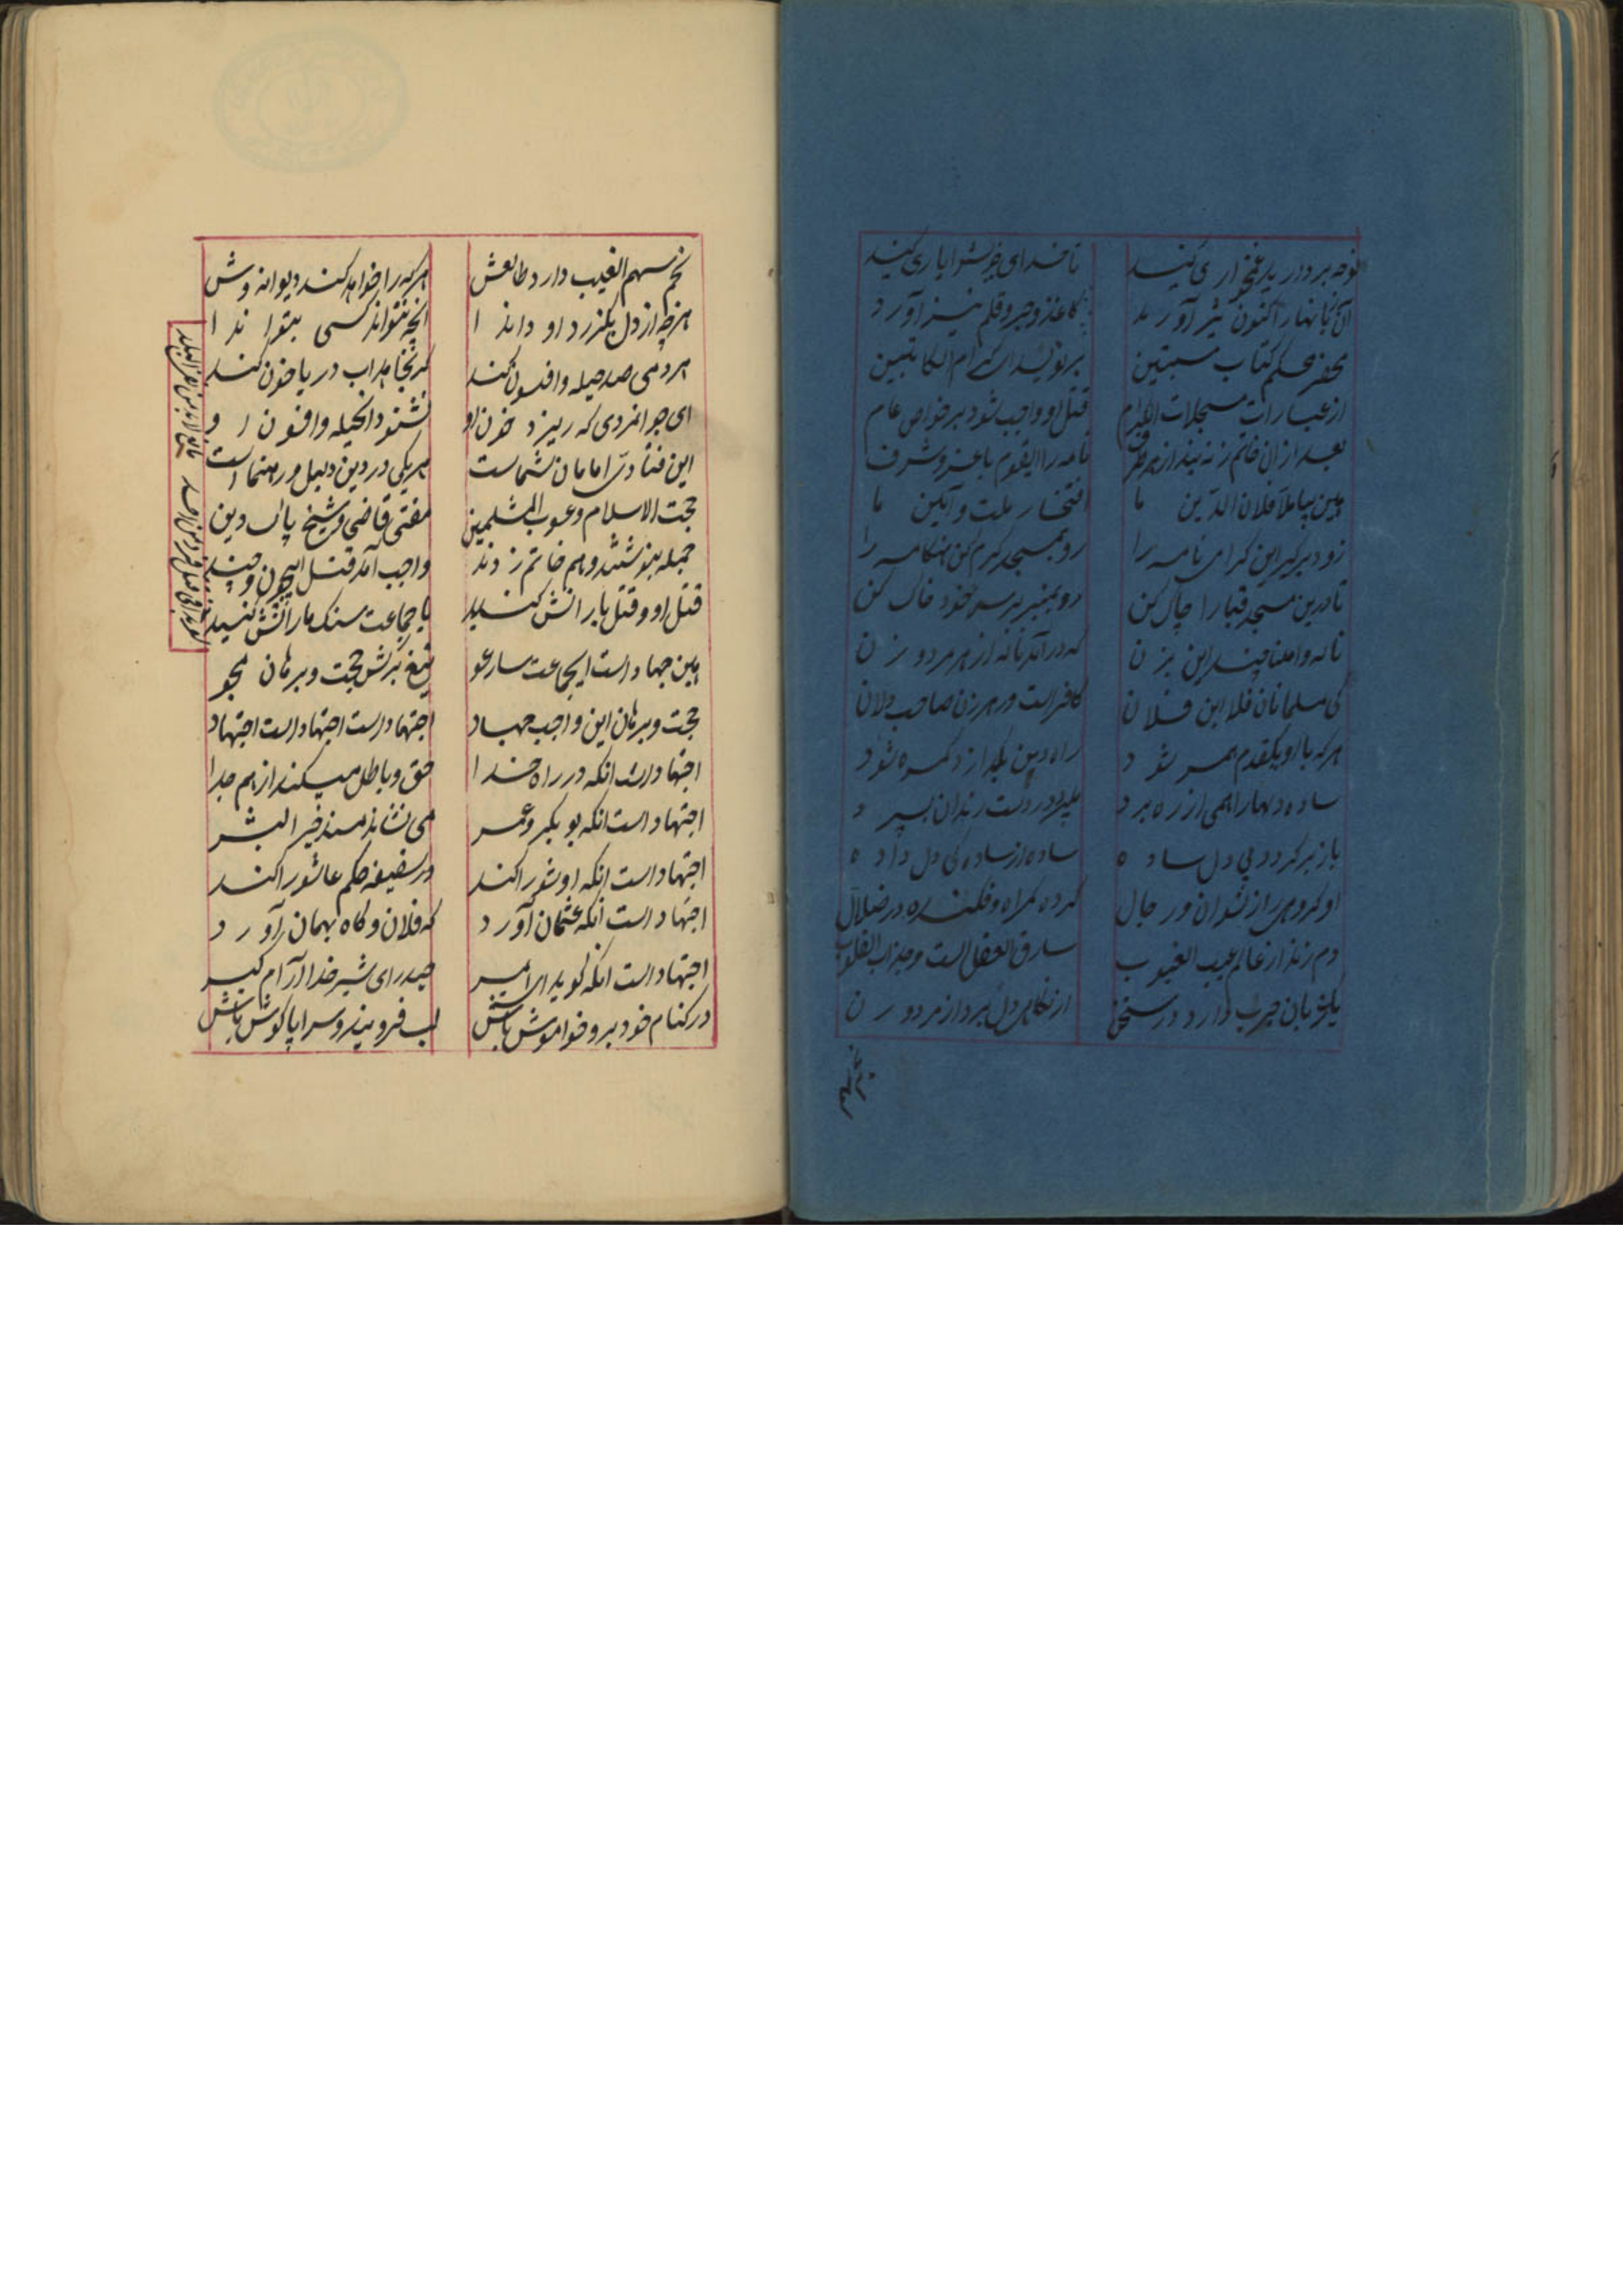 نوحه بردارید و غمخواری کنید
تا خدای خویش را یاری کنید
کاغذ و حبر و قلم نیز آورد
محضر محکم کتاب مستبین
برنویسد ای کرام الکاتبین
از عبارات مسجلات
قتل او واجب شود بر خاص عام
بعد از آن خاتم زنند از هر طرف
نامه را این قوم با عز و شرف
هین بیا ملا فلان الدین ما
افتخار ملت و آئین ما
زود برگیر این گرامی نامه را
رو بمسجد گرم کن هنگامه را
تا درین مسجد قبا را چاک کن
رو بمنبر بر سر خود خاک کن
ناله وا ملتا چندین بزن
که درآید ناله از هر مرد و زن
کی مسلمانان فلان ابن فلان
کافر است و رهزن صاحب دلان
هر که با او یکقدم همره شود
راه دین بگذارد گمره شود
ساده دلها را همی از ره برد
باز برگردد پی دل ساده
ساده از ساده کی دل داده
او گروهی از نسوان و رجال
کرده گمراه و فکنده در ضلال
دم زند از عالم غیب الغیوب
سارق العقل است و جذاب القلوب
یک زبان چرب دارد در سخن
از نگاهی دل برد از مرد و زن
نجم سهم الغیب دارد طالعش
هر که را خواهد کند دیوانه وش
هر چه از دل بگذرد او داند ا
آنچه نتواند کسی بتواند ا
هر دمی صد حیله و افسون کند
گر بخواهد آب دریا خون کند
ای جوانمردی که ریزد خون او
نشنود آن حیله و افسون او
این فتادی امامان شماست
هر یکی در دین دلیل و رهنماست
حجت الاسلام و عون المسلمین
مفتی و قاضی و شیخ پاک دین
جمله بنوشتند و هم خاتم زدند
واجب آمد قتل این چون و چند
قتل او و قتل یارانش کنید
با جماعت سنک بارانش کنید
هین جهاد است ایجماعت سارعو
تیغ برکش حجت و برهان مجو
حجت و برهان این واجب جهاد
اجتهاد است اجتهاد است اجتهاد
اجتهاد است آنکه در راه خدا
حق و باطل میکند از هم جدا
اجتهاد است آنکه بوبکر و عمر
می نشاند مسند خیر البشر
اجتهاد است آنکه او شورا کند
در سقیفه حکم عاشورا کند
اجتهاد است آنکه عثمان آورد
که فلان و گاه بهمان آورد
اجتهاد است آنکه گوید ای امیر
حیدر ای شیر خدا آرام گیر
در کنام خود برو خواموش باش
لب فروبند و سراپا گوش باش